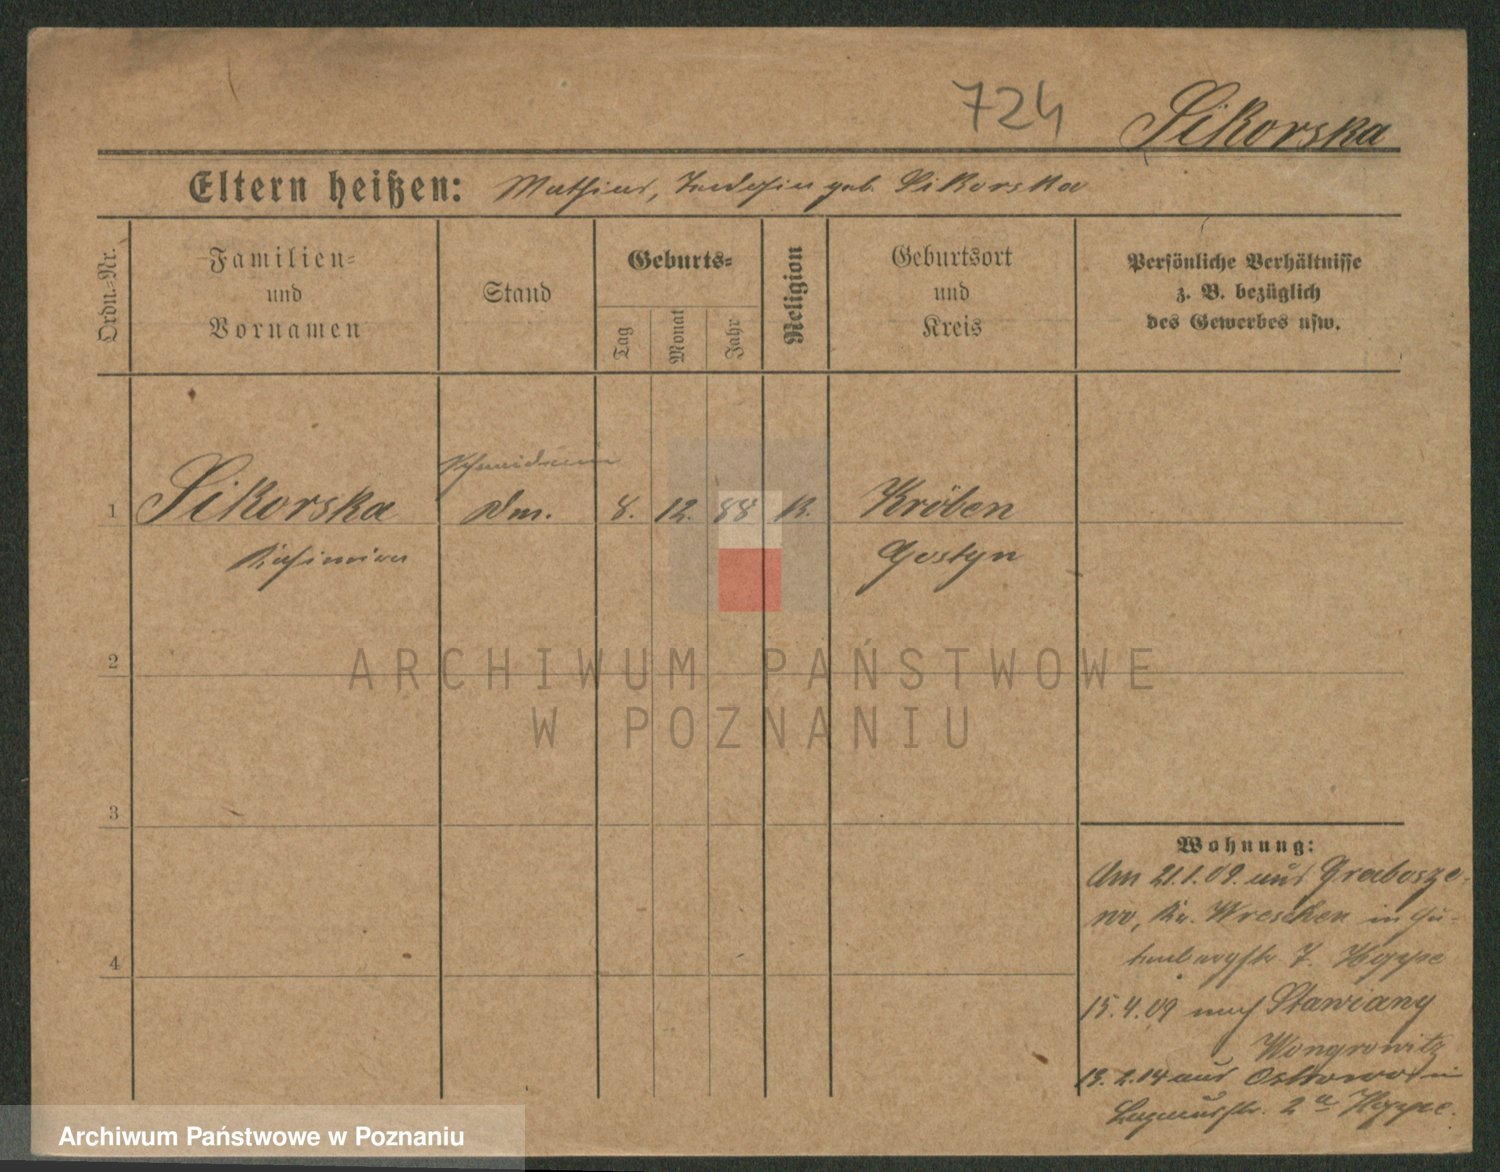 724 Sikorska
Eltern heißen: Mathias, geb. Sikorska
Ordn.-Nr.
Familien-
und
Vornamen
Stand
Geburts-
Tag
Monat
Jahr
Religion
Geburtsort
und
Kreis
Persönliche Verhältnisse
z. B. bezüglich
des Gewerbes usw.
Schneiderin
1 Sikorska 8. 12. 88 K. Kröben
Kasimira Gostyn
2
ARCHIWUM PAŃSTWOWE
W POZNANIU
3
4
Wohnung:
Am 21.1.09. aus Grabosze-
wo, Kr. Wreschen in Gu-
tenbergstr 7. Hoppe
15.4.09 nach Stawiany
Wongrowitz
13. 2. 14 aus Ostrowo in
2 Hoppe.
Archiwum Państwowe w Poznaniu